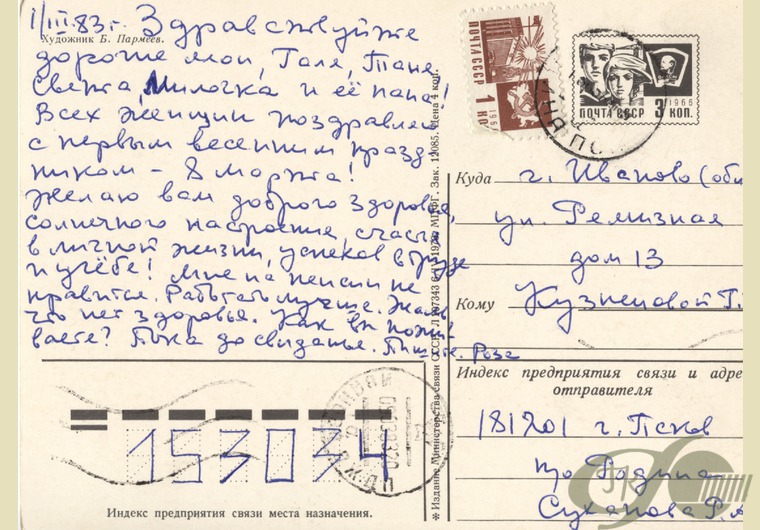 1/III.83г. Здравствуйте
Художник Б. Пармеев.
дорогие мои, Галя, Таня
Света, Милочка и её папа!
Всех женщин поздравляю
с первым весенним празд
ником - 8 марта!
Желаю вам доброго здоровья,
солнечного настроения, счастья
в личной жизни, успехов в труде
и учёбе! Мне на пенсии не
нравится. Работать лучше. Жаль
что нет здоровья. Как вы пожи-
ваете? Пока до свиданья. Пишите. Роза
153034
Индекс предприятия связи места назначения.
✻ Издание Министерства связи СССР. 1978 МПФГ. Зак. 12085. Цена 4 коп.
ПОЧТА СССР
1 КОП
196
1966
ПОЧТА СССР 3 КОП.
Куда г. Иваново (обл
ул. Ремизная
дом 13
Кому Кузнецовой Г.
Индекс предприятия связи и адре
отправителя
181201 г. Псков
по Родина
Суханова Р. А